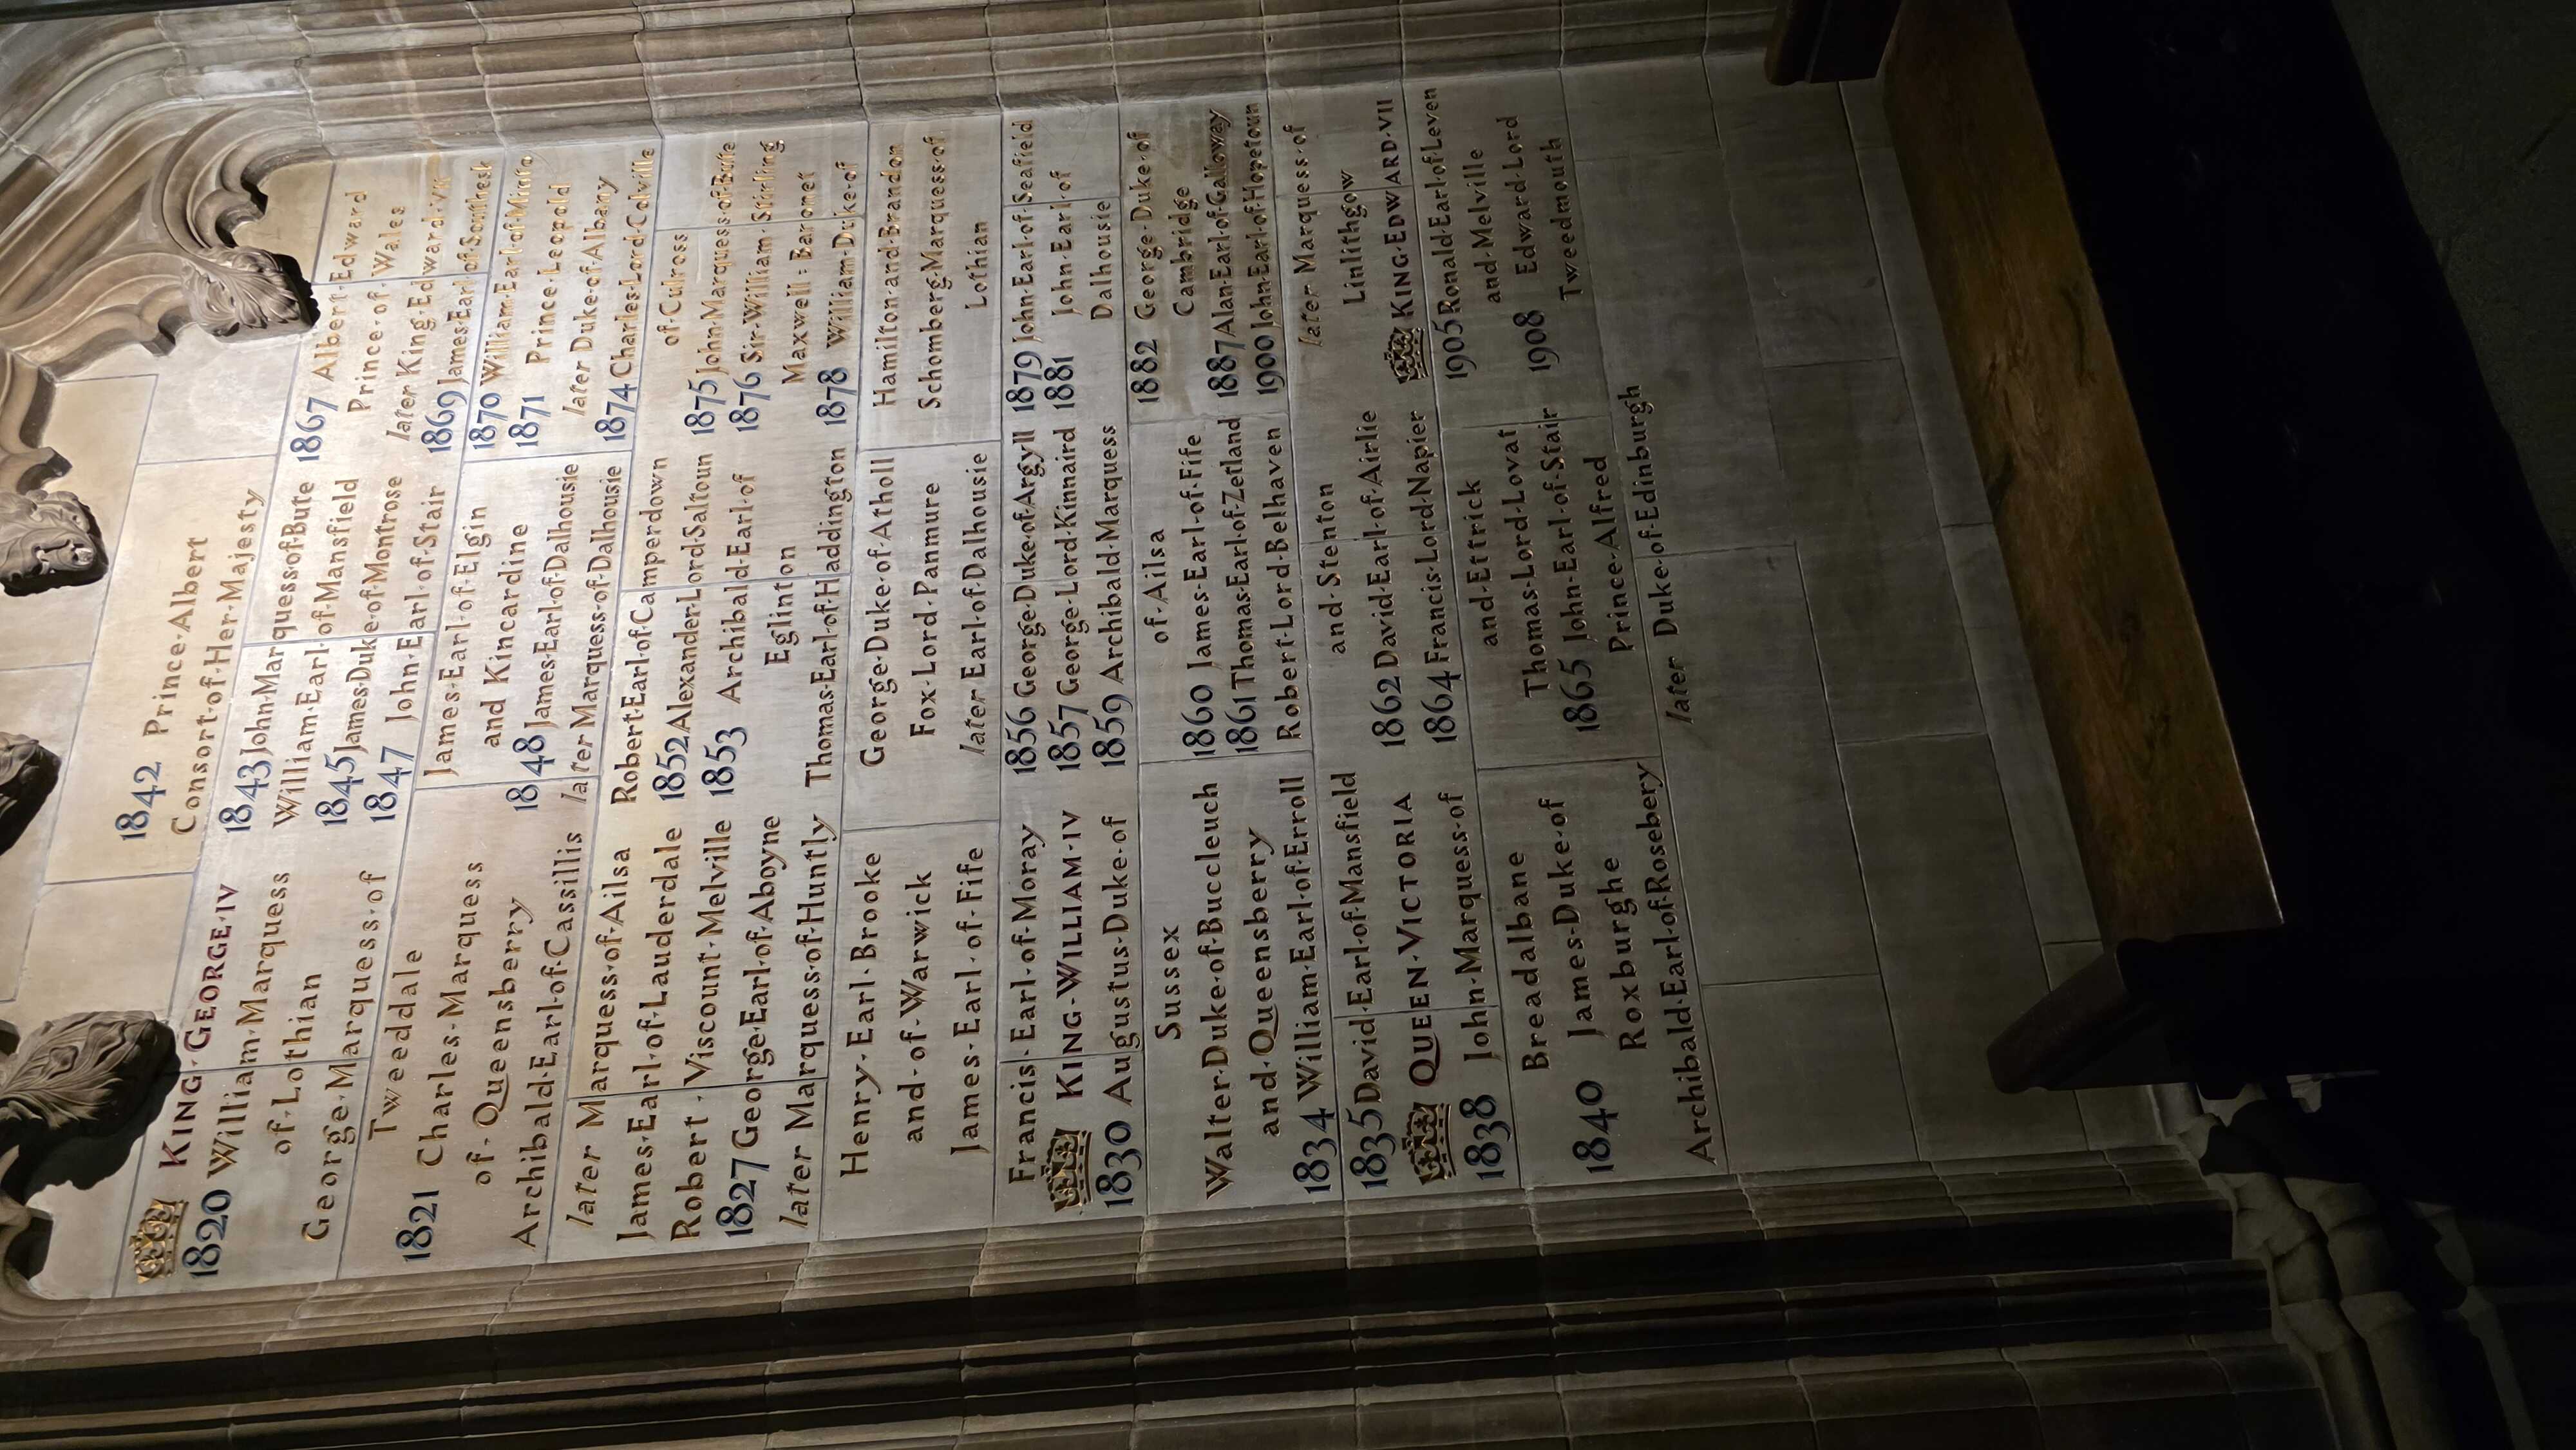 KING·GEORGE·IV
1820 William·Marquess
of·Lothian
George·Marquess·of
Tweeddale
1821 Charles·Marquess
of·Queensberry
Archibald·Earl·of·Cassillis
later Marquess·of·Ailsa
James·Earl·of·Lauderdale
Robert·Viscount·Melville
1827 George·Earl·of·Aboyne
later Marquess·of·Huntly
Henry·Earl·Brooke
and·of·Warwick
James·Earl·of·Fife
Francis·Earl·of·Moray
KING·WILLIAM·IV
1830 Augustus·Duke·of
Sussex
Walter·Duke·of·Buccleuch
and·Queensberry
1834 William·Earl·of·Erroll
1835 David·Earl·of·Mansfield
QUEEN·VICTORIA
1838 John·Marquess·of
Breadalbane
1840 James·Duke·of
Roxburghe
Archibald·Earl·of·Rosebery
1842 Prince·Albert
Consort·of·Her·Majesty
1843 John·Marquess·of·Bute
William·Earl·of·Mansfield
1845 James·Duke·of·Montrose
1847 John·Earl·of·Stair
James·Earl·of·Elgin
and Kincardine
1848 James·Earl·of·Dalhousie
later Marquess·of·Dalhousie
Robert·Earl·of·Camperdown
1852 Alexander·Lord·Saltoun
1853 Archibald·Earl·of
Eglinton
Thomas·Earl·of·Haddington
George·Duke·of·Atholl
Fox·Lord·Panmure
later Earl·of·Dalhousie
1856 George·Duke·of·Argyll
1857 George·Lord·Kinnaird
1859 Archibald·Marquess
of·Ailsa
1860 James·Earl·of·Fife
1861 Thomas·Earl·of·Zetland
Robert·Lord·Belhaven
and·Stenton
1862 David·Earl·of·Airlie
1864 Francis·Lord·Napier
and·Ettrick
Thomas·Lord·Lovat
1865 John·Earl·of·Stair
Prince·Alfred
later Duke·of·Edinburgh
1867 Albert·Edward
Prince·of·Wales
later King·Edward·VII
1869 James·Earl·of·Southesk
1870 William·Earl·of·Minto
1871 Prince·Leopold
later Duke·of·Albany
1874 Charles·Lord·Colville
of·Culross
1875 John·Marquess·of·Bute
1876 Sir·William·Stirling
Maxwell:Baronet
1878 William·Duke·of
Hamilton·and·Brandon
Schomberg·Marquess·of
Lothian
1879 John·Earl·of·Seafield
1881 John·Earl·of
Dalhousie
1882 George·Duke·of
Cambridge
1887 Alan·Earl·of·Galloway
1900 John·Earl·of·Hopetoun
later Marquess·of
Linlithgow
KING·EDWARD·VII
1905 Ronald·Earl·of·Leven
and·Melville
1908 Edward·Lord
Tweedmouth